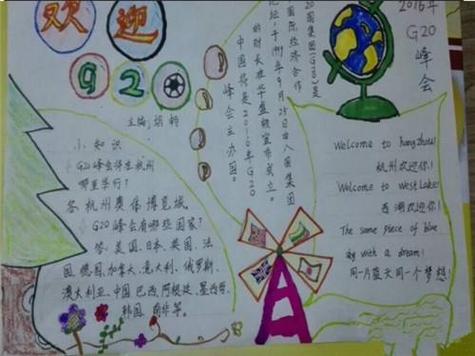 欢迎
G20
主编:胡
小知识
G20峰会将在杭州
哪里举行?
答:杭州奥体博览城
G20峰会有哪些国家?
答:美国、日本、英国、法
国、德国、加拿大、意大利、俄罗斯、
澳大利亚、中国、巴西、阿根廷、墨西哥、
韩国、南非等。
20国集团(G20)是
国际经济合作
论坛,于1999年9月25日由八国集团
的财长在华盛顿宣布成立。
中国将是2016年G20
峰会主办国。
2016年
G20
峰会
Welcome to hangzhou!
杭州欢迎你!
Welcome to West Lake!
西湖欢迎你!
The same piece of blue
sky with a dream!
同一片蓝天同一个梦想!